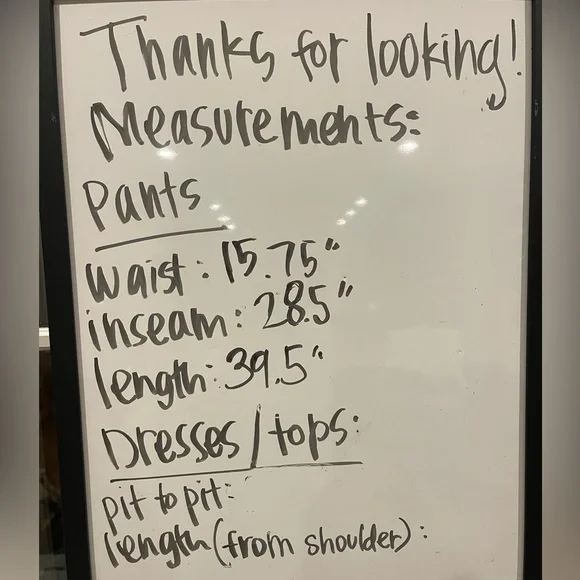 Thanks for looking!
Measurements:
Pants
waist: 15.75"
inseam: 28.5"
length: 39.5"
Dresses/tops:
pit to pit:
length (from shoulder):